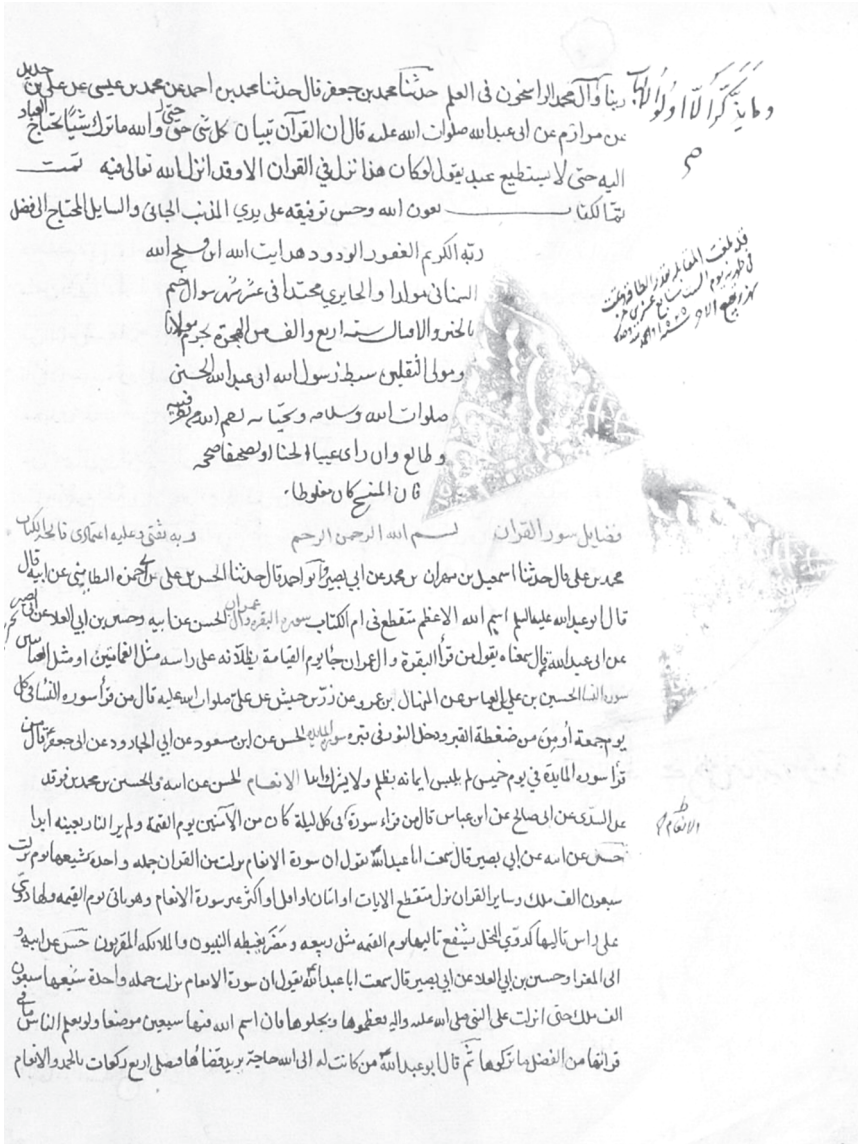 ربنا وآل محمد الراسخون فى العلم حدثنا محمد بن جعفر قال حدثنا محمد بن احمد عن محمد بن عيسى عن على بن حديد
عن مرازم عن ابى عبد الله صلوات الله عليه قال ان القرآن تبيان كل شى حتى والله ماترك شيئا يحتاج العباد
اليه حتى لا يستطيع عبد يقول لو كان هذا نزل فى القوان الا وقد انزل الله تعالى فيه تمت
تم الكتاب بعون الله وحسن توفيقه على يدي المذنب الجانى والسايل المحتاج الى فضل
ربه الكريم الغفور الودود هدايت الله ابن الله
مولدا والحايري محتدا فى عشر شهر سوال ختم
بالخير والاقبال سنه اربع والف من الهجرة بحرم مولانا
ومولى الثقلين سبط رسول الله ابى عبد الله الحسين
صلوات الله وسلامه وتحياته رحم الله من نظر فيه
وطالع وان راى عيبا او تصحيفا صححه
فان المنسخ كان مغلوطا
وما يذكر الا اولوا الالباب
صح
قد بلغت المقابلة بقدر الطاقة
فضايل سور القران بسم الله الرحمن الرحيم وبه ثقتى وعليه اعتمادى فاتحة الكتاب
محمد بن على قال حدثنا اسمعيل بن مهران بن محمد عن ابى بصير قال حدثنا الحسن بن على بن ابى حمزه البطاينى عن ابيه قال
قال ابو عبد الله عليه السلم اسم الله الاعظم مقطع فى ام الكتاب سوره البقره وال عمران الحسن عن ابيه وحسين بن ابى العلا عن ابى بصير
عن ابى عبد الله قال سمعناه يقول من قرأ البقرة وال عمران جا يوم القيامة يظلانه على راسه مثل الغمامتين او مثل
سوره النسا الحسين بن على عن المنهال ابن عمرو عن زر بن حبيش عن على صلوات الله عليه قال من قرأ سوره النسا فى كل
يوم جمعة أومن من ضغطة القبر ودخل النور فى قبره سوره المايده الحسن عن ابن مسعود عن ابى الجارود عن ابى جعفر قال من
قرأ سوره المايدة في يوم خميس لم يلبس ايمانه بظلم ولا يشرك ابدا الانعام الحسن عن ابيه والحسين بن محمد بن فرقد
عن السدى عن ابى صالح عن ابن عباس قال من قراء سورة فى كل ليلة كان من الآمنين يوم القيمة ولم ير النار بعينه ابدا
الانعام
عن ابيه عن ابى بصير قال سمعت ابا عبد الله يقول ان سورة الانعام نزلت من القران جمله واحده شيعها يوم نزلت
سبعون الف ملك وساير القران نزل متقطع الايات او اثنان او اقل او اكثر غير سورة الانعام وهو ياتى يوم القيمه ولها دوي
على راس تاليها كدوي النحل يشفع تاليها يوم القيمه مثل ربيعه ومضر يغبطه النبيون والملائكه المقربون حسن عن ابيه و
ابى المغرا وحسين بن ابى العلا عن ابى بصير قال سمعت ابا عبد الله يقول ان سورة الانعام نزلت جمله واحدة شيعها سبعون
الف ملك حتى انزلت على النبى صلى الله عليه واله فعظموها وبجلوها فان اسم الله فيها سبعين موضعا ولو يعلم الناس ما فى
قرائتها من الفضل ما تركوها ثم قال ابو عبد الله من كانت له الى الله حاجة يريد قضاها فصلى اربع ركعات بالحمد والانعام